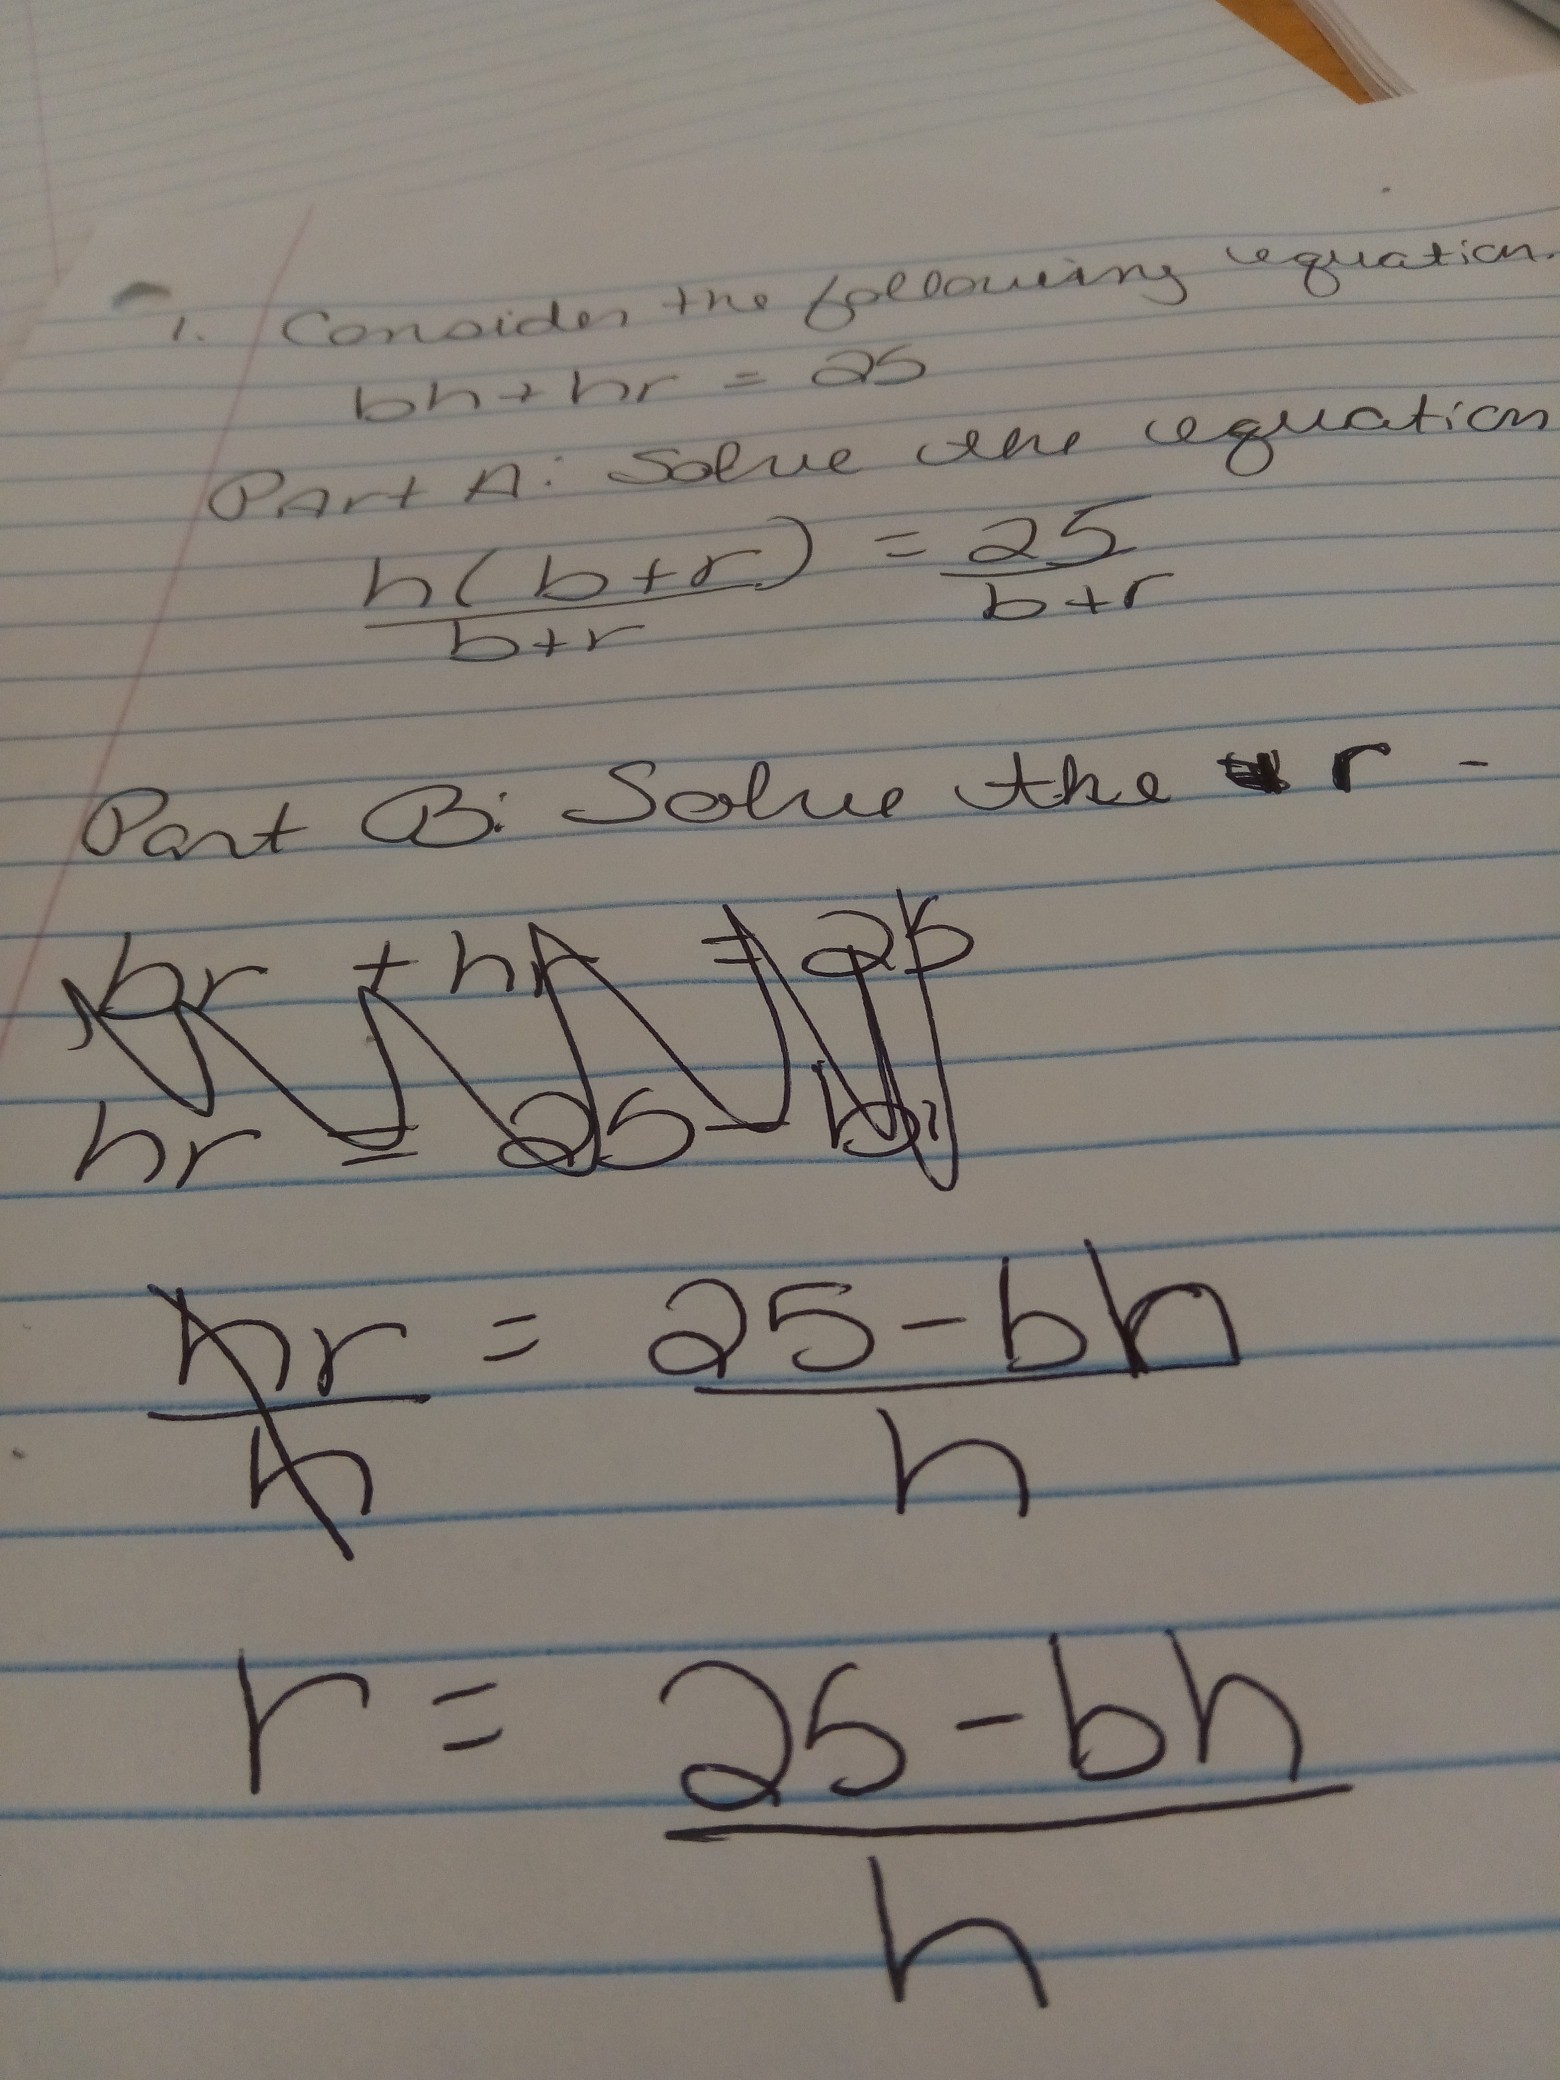 1. Consider the following equation.
bh + hr = 25
Part A: Solve the equation
h(b+r) = 25
b+r b+r
Part B: Solve the r -
br + hr = 25
hr = 25 -
hr = 25 - bh
h h
r = 25 - bh
h